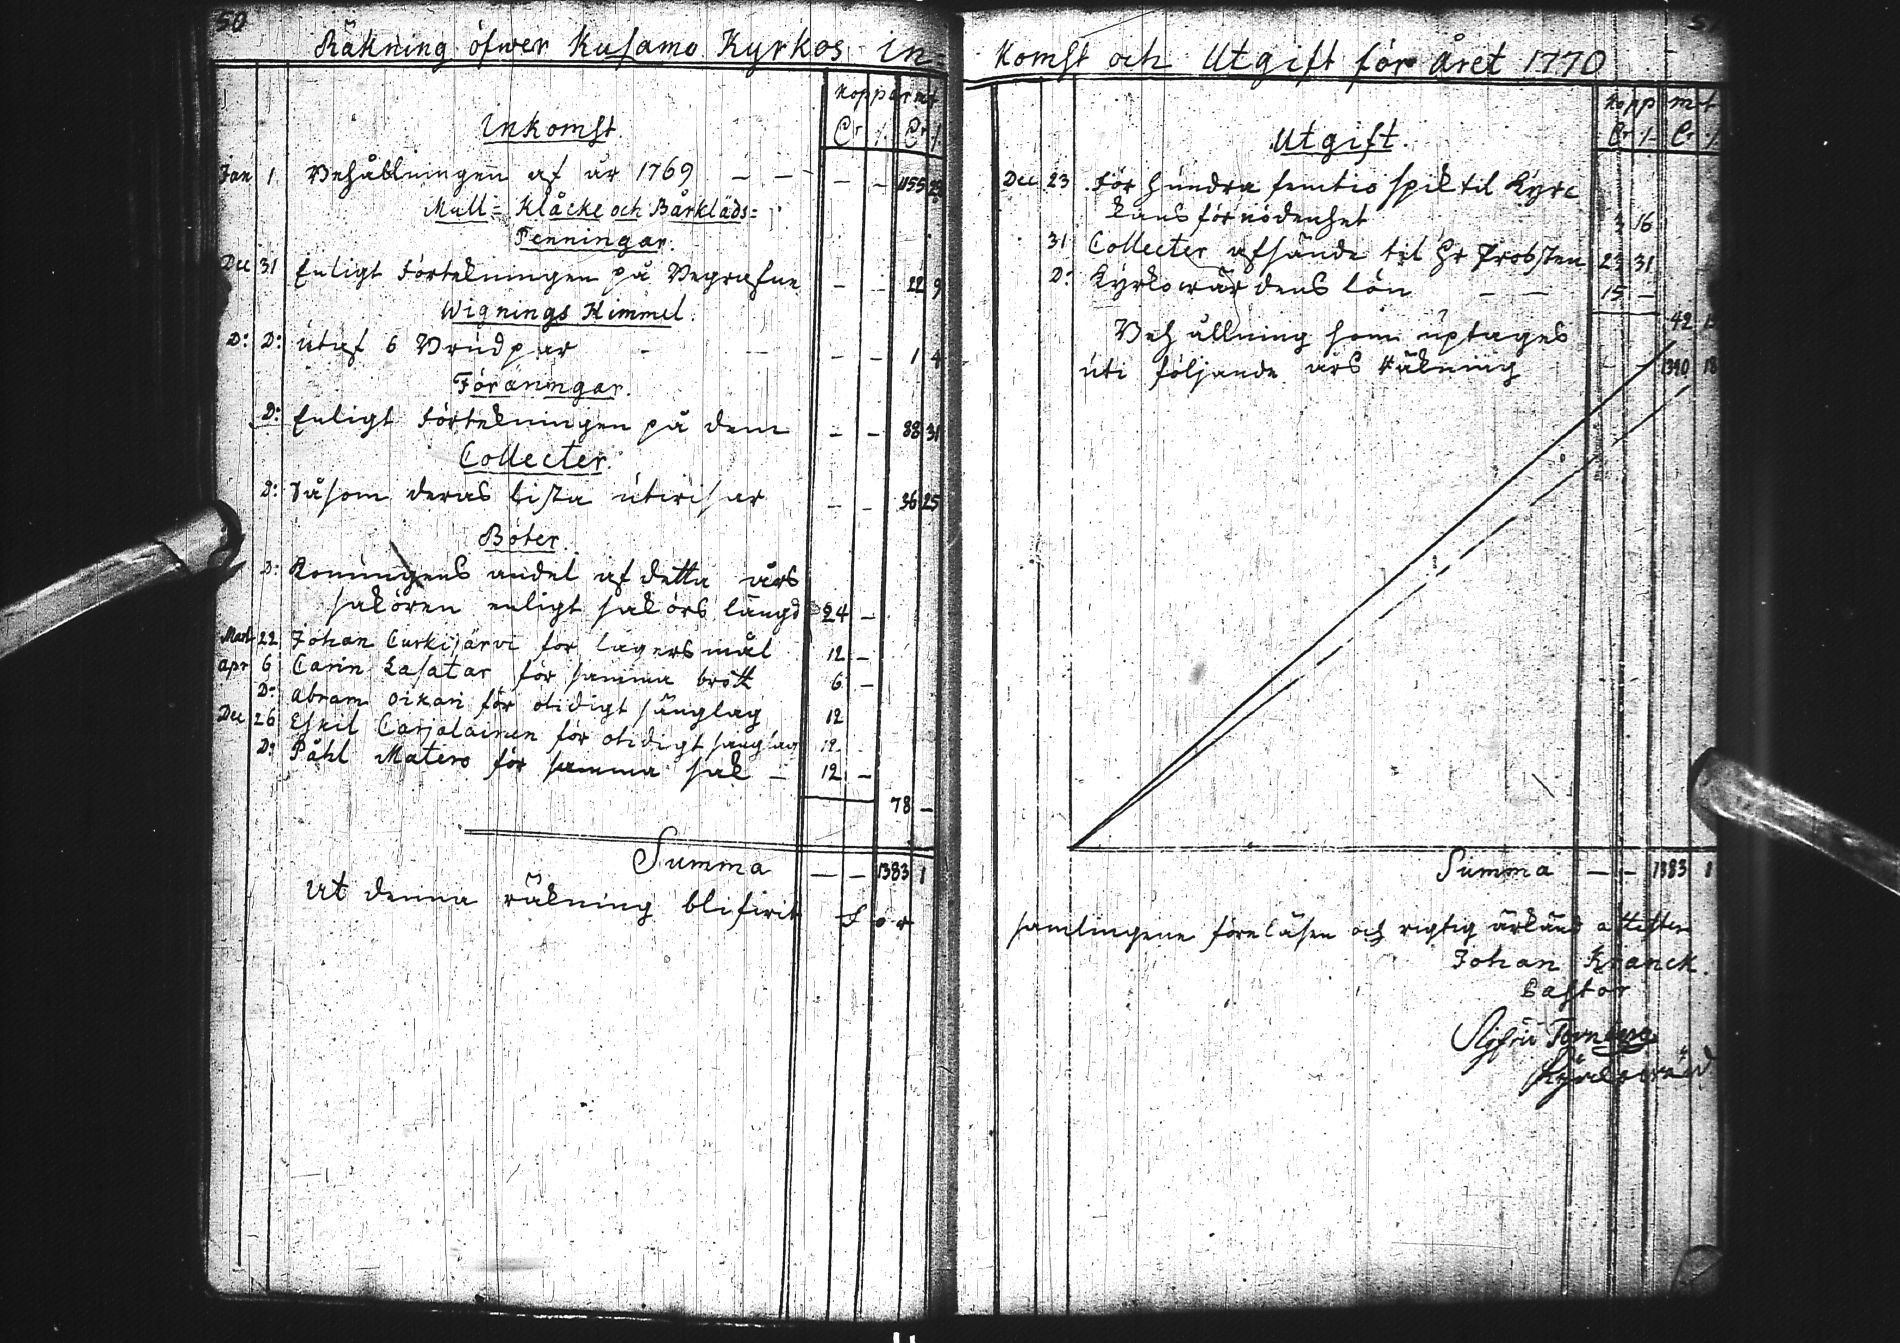 50
Räkning öfwer Kusamo Kyrkos In=
Koppar mt
Inkomst.
Cr / Cr /
Jan 1 Behållningen af år 1769 — — — — 1155 23
Mull= Klåcke och Bårkläds=
Penningar.
Dec 31 Enligt Förtekningen på Begrafne — — 22 9
Wignings Himmel.
D: D: utaf 6 Brudpar — — — — 1 4
Föräningar.
D: Enligt Förtekningen på dem — — 88 31
Collecter.
D: Såsom deras lista utvisar — — 36 25
Böter.
D: Konungens andel af detta års
saköres enligt sakörs längd 24 —
Mart 22 Johan Curkijärvi for lägersmål 12 —
apr 6 Carin Lasatar för samma brott 6 —
D: abram Oikari för otidigt sänglag 12
Dec 26 Eskil Carjalainen för otidigt sänglag 12
D: Påhl Matero för samma sak — 12 —
78 —
Summa — — 1383 1
Ut denna räkning blifwit för
Komst och Utgift för året 1770
Kopp mt
Utgift.
Cr / Cr /
Dec 23 För hundra femtio spik til Kyrc
kans förnödenhet 3 16
31 Collecter afsände til Hr Probsten 23 31
D: Kyrkowärdens lön — — 15 —
42 15
Behållning som uptages
uti följande års Räkning 1340 18
Summa — — 1383 1
samlingene föreläsen och rigtig ärkänd attesten
Johan Kranck.
Pastor
Kyrckowärd